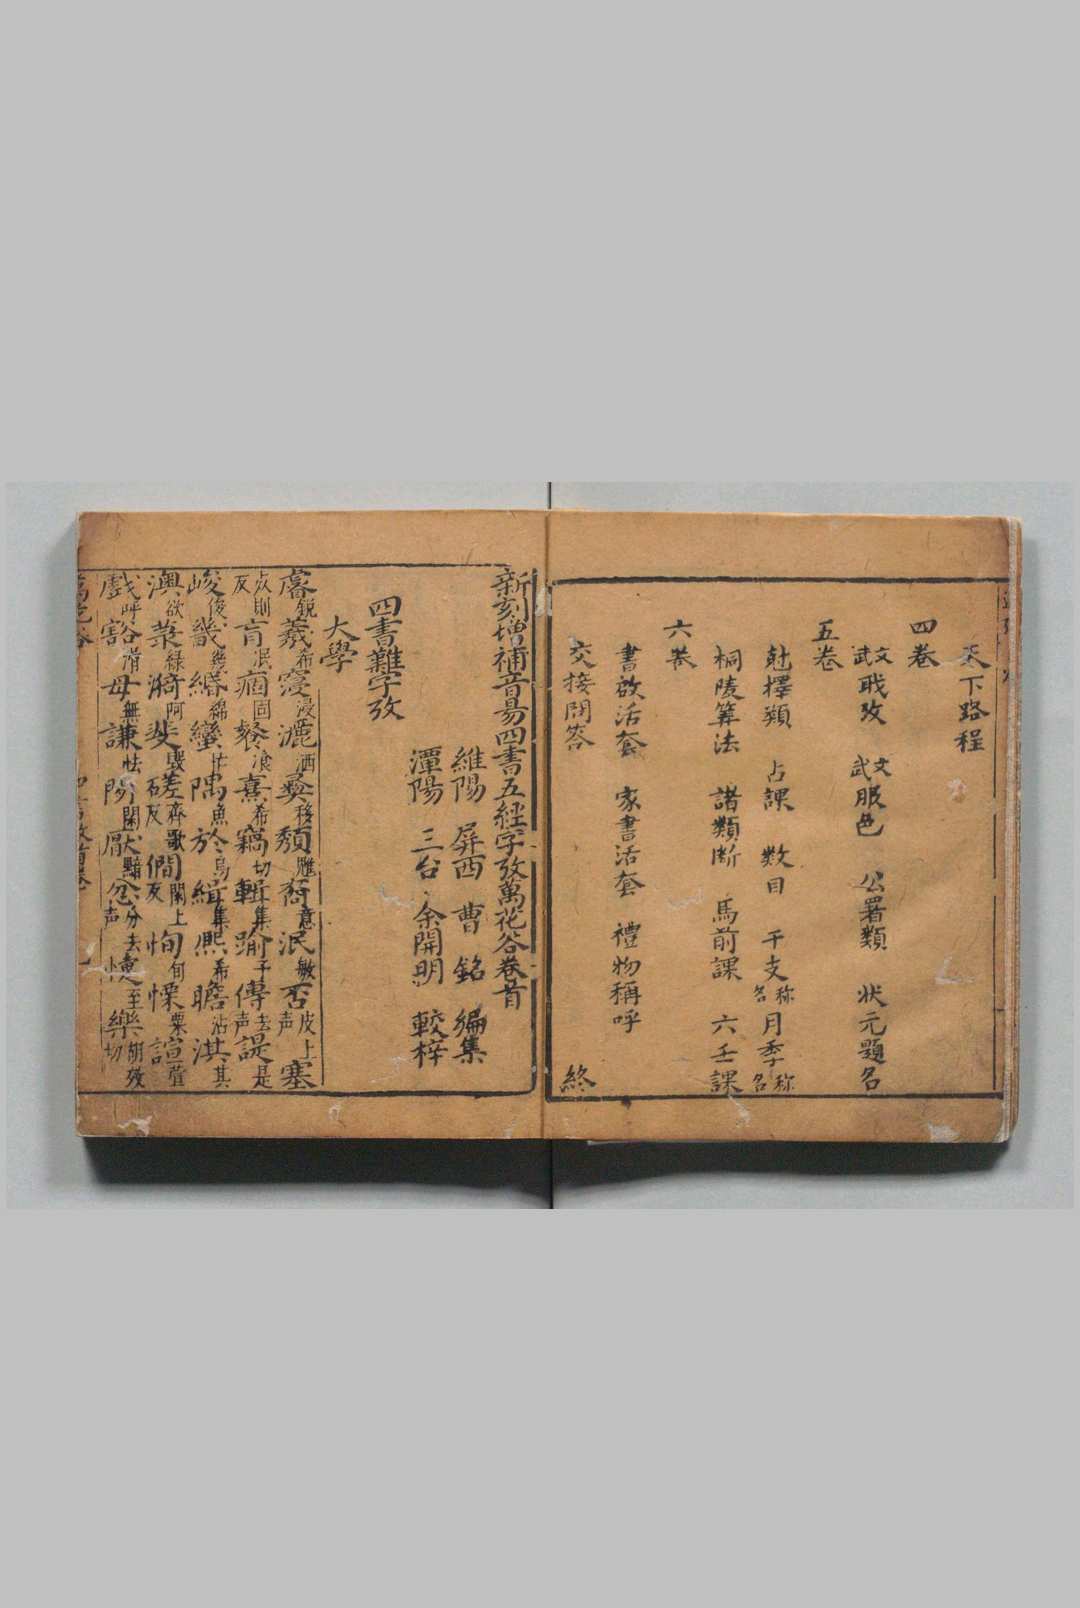 天下路程
四卷
文武職攷 文武服色 公署類 狀元題名
五卷
尅擇類 占課 数目 干支名称 月季名称
桐陵筭法 諸類断 馬前課 六壬課
六卷
書啟活套 家書活套 禮物稱呼
交接問答
終
新刻增補音易四書五經字攷萬花谷卷首
維陽 屏西 曹 銘 編集
潭陽 三台 余開明 較梓
四書難字攷
大學
睿銳羲希寖浸灑洒彝移頹雕裔意泯敏否皮上声塞
夾則反盲泯痼固飱飡熹希竊切輯集踰于傳去声諟是
峻俊畿緡綿蠻隅魚於烏緝集熈希瞻沾淇其
澳欲菉緑猗阿斐磋齊歌僩閑上恂旬慄栗諠萱
戲呼谿毋無謙怯閒閑厭黯忿分去声懥至樂切